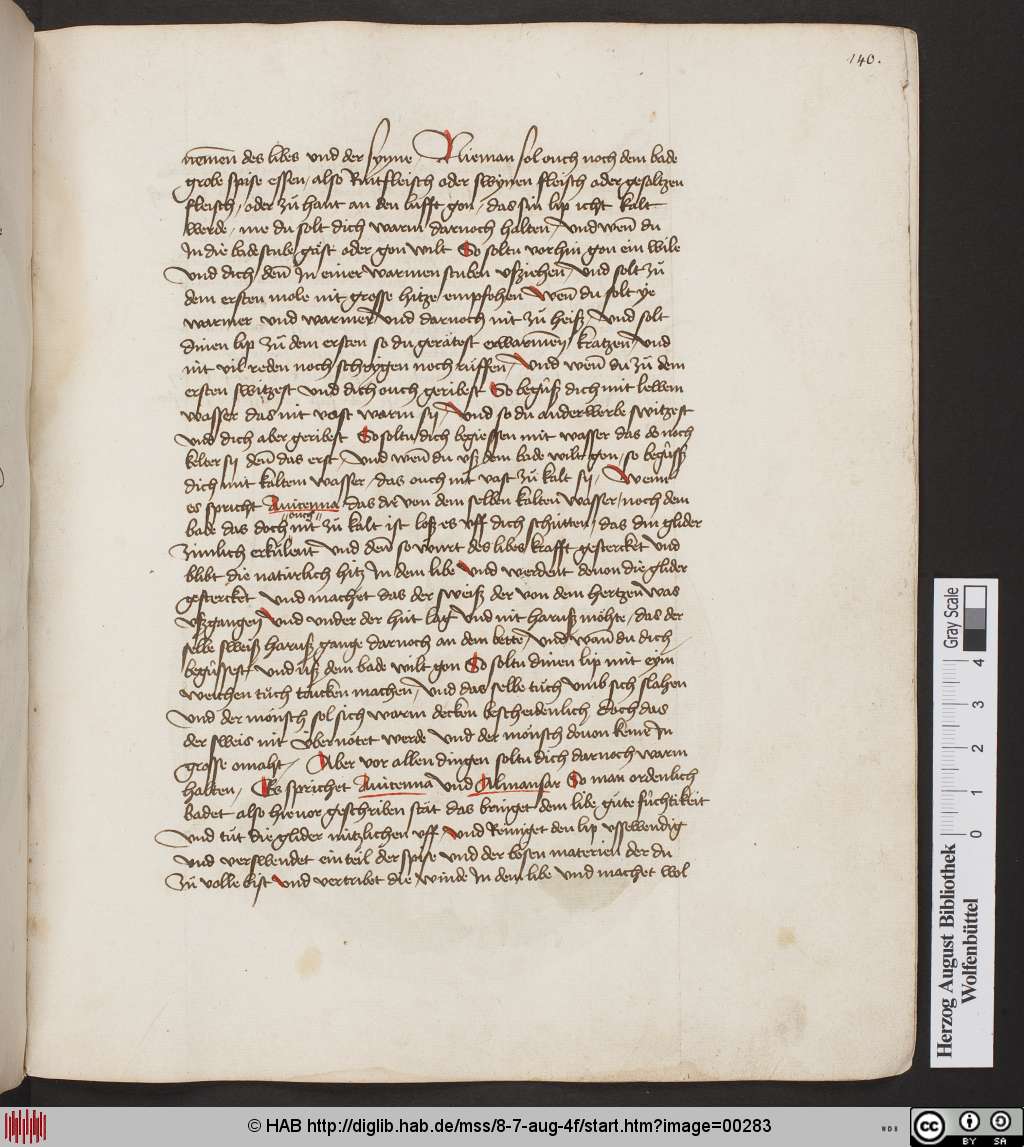 140.
nemen̄ des libes vnd der synne / Nieman sol ouch noch dem bade
grobe spise essen / also Rintfleisch oder swynen fleisch oder gesaltzen
fleisch / oder zů hant an den lufft gon / das sin lip icht kalt
werde / me du solt dich warm darnoch halten / vnd wen̄ du
In die badestube gast oder gon wilt So soltu vor hin gon ein wile
vnd dich den̄ In einer warmen stuben vszziehen / vnd solt zů
dem ersten mole nit grosse hitze empfohen wen̄ du solt ye
warmer vnd warmer vnd darnoch nit zů heisz / vnd solt
dinen lip zů dem ersten so du geratest erwarmen kratzen / vnd
nit vil reden noch schrygen noch růffen / vnd wen̄ du zů dem
ersten switzest vnd dich ouch geribest So begůsz dich mit lewem
wasser das nit vast warm sy / vnd so du anderwerbe switzest
vnd dich aber geribest So soltu dich begiessen mit wasser das do noch
kelter sy den̄ das erst / vnd wen̄ du vsz dem bade wilt gon / so begůsz
dich mit kaltem wasser / das ouch nit vast zů kalt sy / Wenn
es spricht Auicenna das du von dem selben kalten wasser / noch dem
ouch
bade das doch nit zů kalt ist losz es vff dich schutten / das din glider
zimlich erkůlent vnd den̄ so wurt des libes krafft gestercket vnd
blibt die naturlich hitz In dem libe vnd werdent douon die glider
gestercket vnd machet das der sweisz der von dem hertzen was
vszgangen vnd vnder der hut lag vnd nit harusz mőhte / das der
selbe sweisz harusz gange darnoch an dem bette / vnd wan̄ du dich
begůssest vnd vsz dem bade wilt gon So soltu dinen lip mit eym
weichen tůch trucken machen / vnd das selbe tůch vmb sich slahen
vnd der mőnsch sol sich warm decken bescheidenlich doch das
der sweis nit vbernotet werde vnd der mőnsch douon keme In
grosse omaht / Aber vor allen dingen soltu dich darnoch warm
halten / Es sprichet Auicenna vnd Almansar So man ordenlich
badet also hieuor geschriben stat das bringet dem libe gůte fůchtikeit
vnd tůt die glider nůtzlichen vff vnd Reiniget den lip vssewendig
vnd verswendet ein teil der spise vnd der bősen materien der du
zů volle bist vnd vertribet die winde In dem libe vnd machet wol
Gray Scale
0 1 2 3 4
Herzog August Bibliothek
Wolfenbüttel
© HAB http://diglib.hab.de/mss/8-7-aug-4f/start.htm?image=00283
WDB
cc BY SA